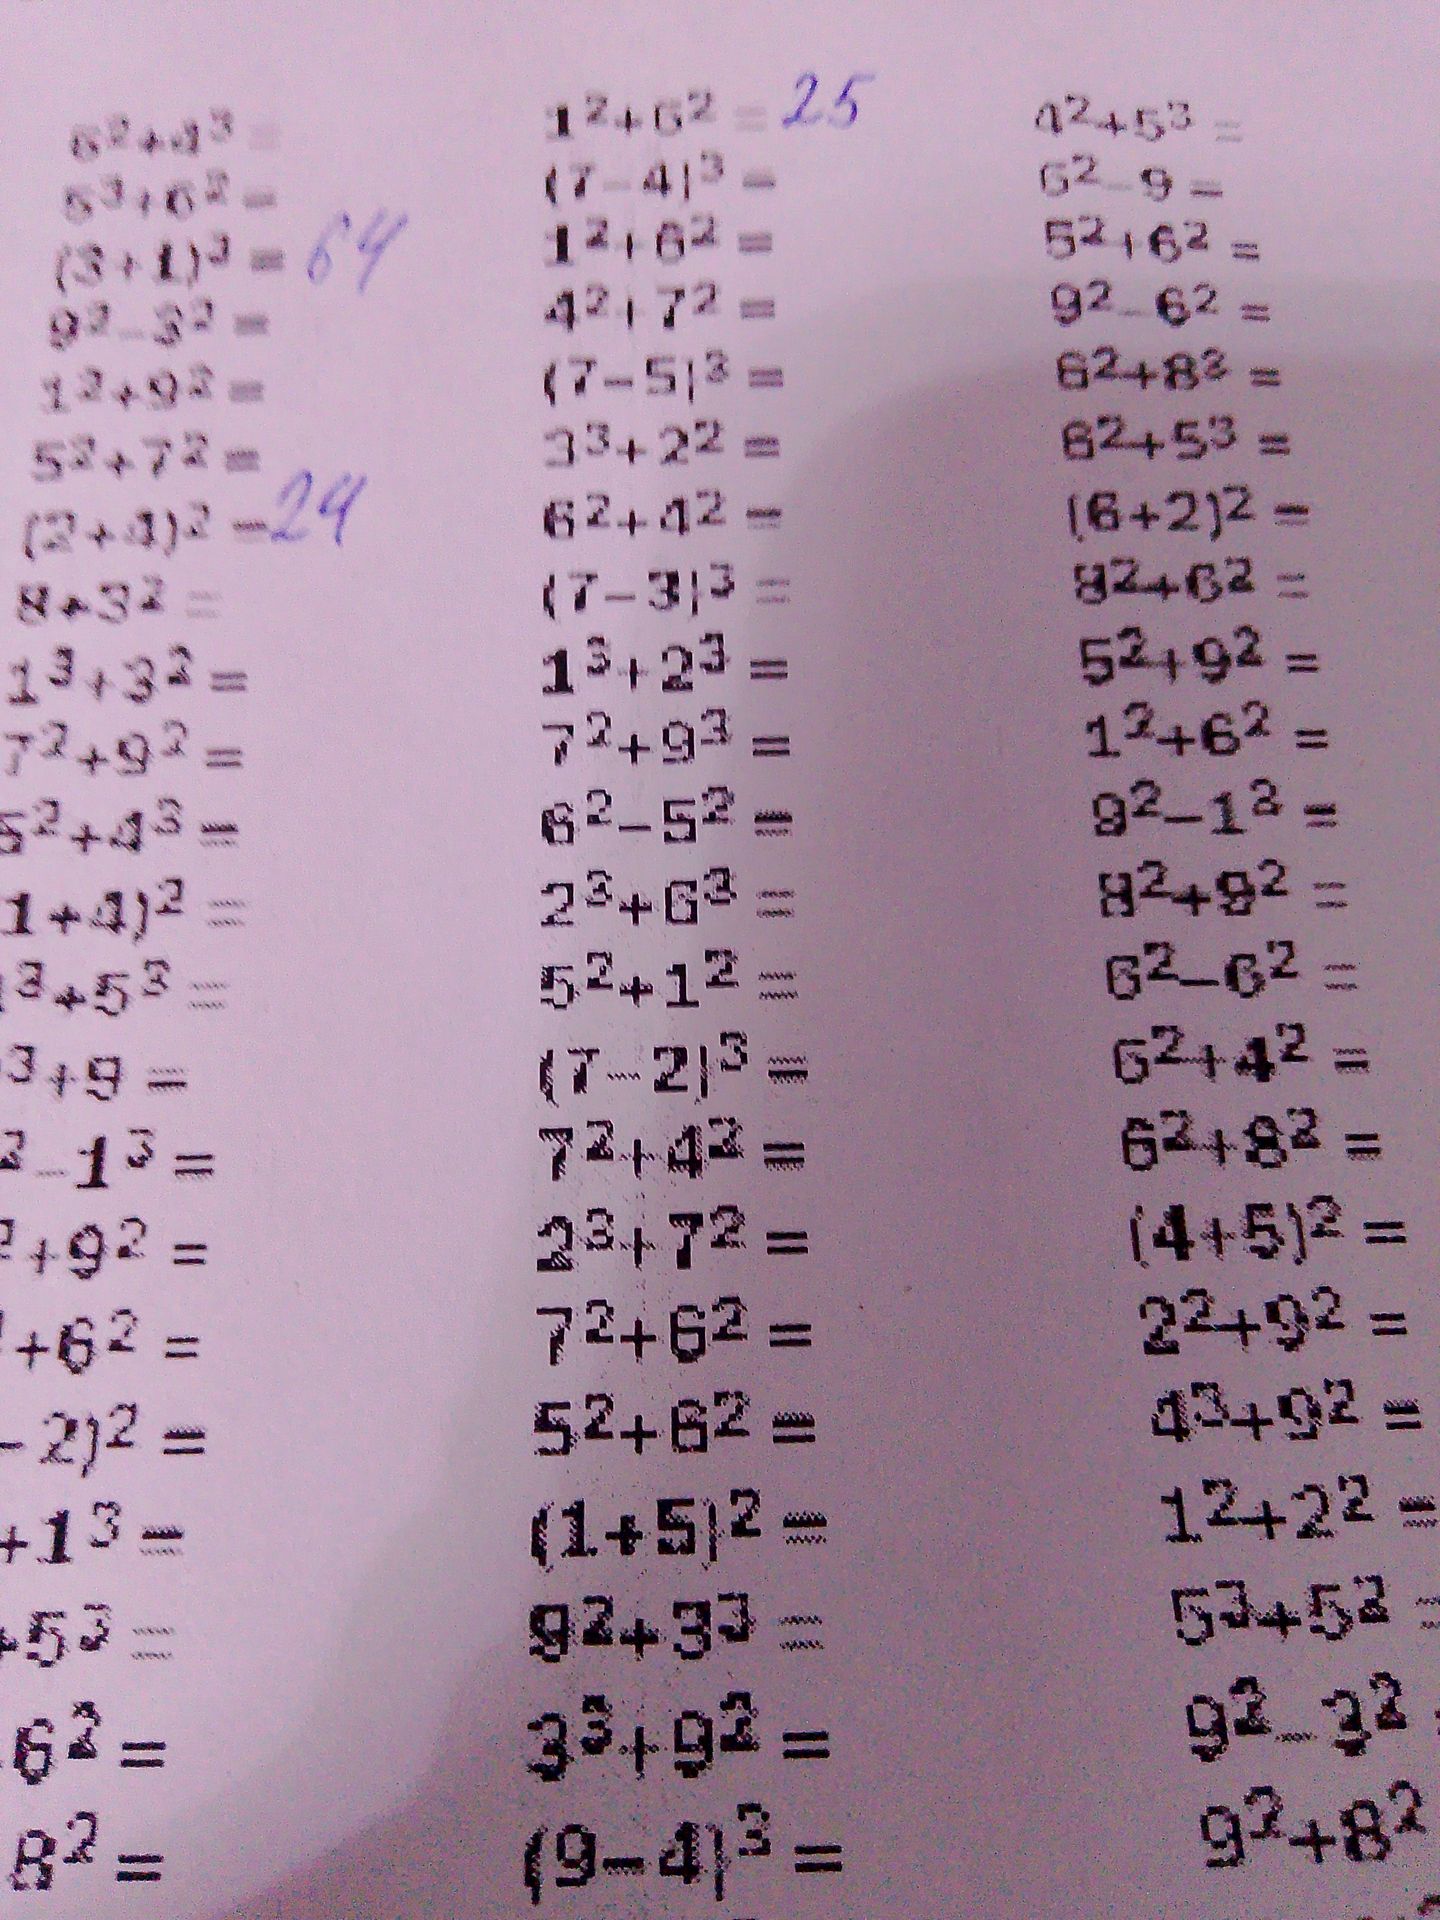 6²+4³ =
5³+6² =
(3+1)³ = 64
9²-3² =
1²+9² =
5²+7² =
(2+4)² = 24
8+3² =
1³+3² =
7²+9² =
6²+4³ =
1+4)² =
³+5³ =
³+9 =
²-1³ =
²+9² =
+6² =
-2)² =
+1³ =
+5³ =
6² =
8² =
1²+6² = 25
(7-4)³ =
1²+6² =
4²+7² =
(7-5)³ =
3³+2² =
6²+4² =
(7-3)³ =
1³+2³ =
7²+9³ =
6²-5² =
2³+6³ =
5²+1² =
(7-2)³ =
7²+4² =
2³+7² =
7²+6² =
5²+6² =
(1+5)² =
9²+3³ =
3³+9² =
(9-4)³ =
4²+5³ =
6²-9 =
5²+6² =
9²-6² =
6²+8³ =
6²+5³ =
(6+2)² =
8²+6² =
5²+9² =
1²+6² =
9²-1³ =
8²+9² =
6²-6² =
6²+4² =
6²+8² =
(4+5)² =
2²+9² =
4³+9² =
1²+2² =
5³+5² =
9²-3²
9²+8²